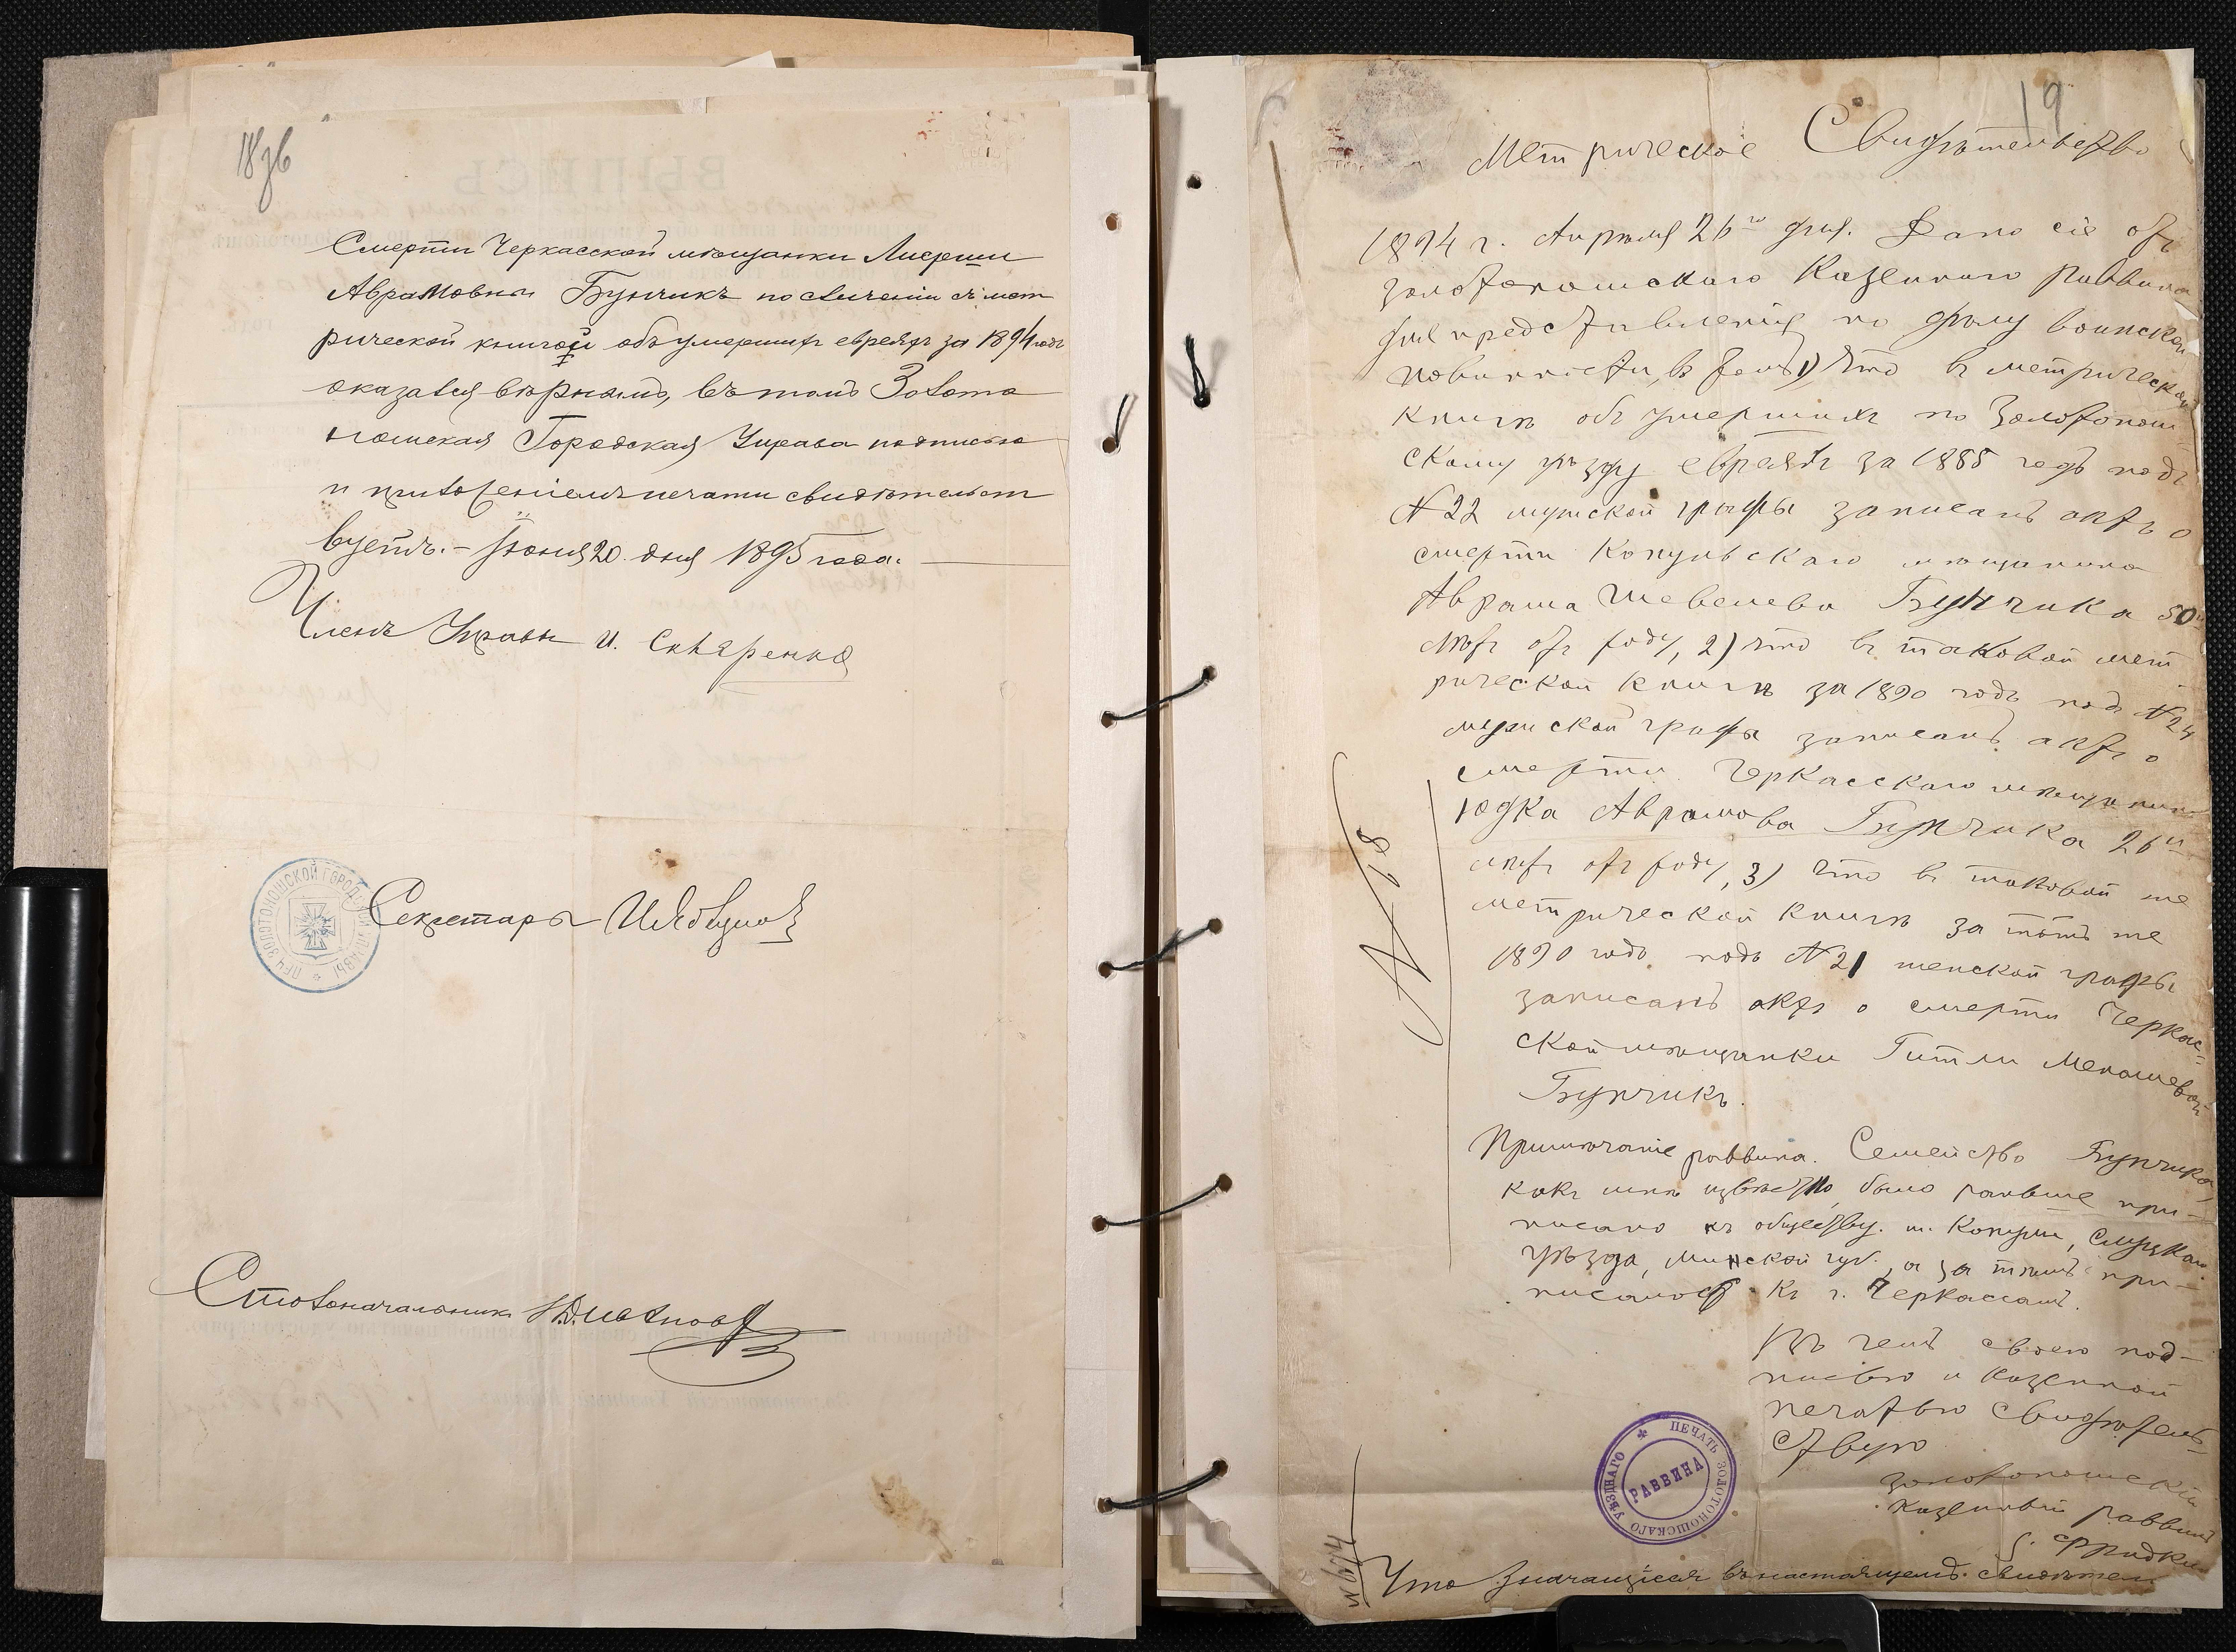 18 зв
Смерти Черкасской мѣщанки
Аврамовны Бунчикъ по свиченіи съ мет
рической книгой объ умершихъ евреяхъ за 1894 годъ
оказался вѣрнымъ, въ томъ Золото
ношская Городская Управа подписью
и приложеніемъ печати свидѣтельст
вуетъ. – Іюня 20 дня 1895 года.
Членъ Управы И. Скляренко
ПЕЧ. ЗОЛОТОНОШСКОЙ ГОРОДСК. УПРАВЫ
Секретарь
Столоначальникъ
19
Метрическое Свидѣтельство
1894 г. Апрѣля 26го дня. Дано сіе отъ
Золотоношскаго Казеннаго Раввина
для представленія по дѣлу воинской
повинности, въ томъ 1) что въ метрической
книгѣ объ умершихъ по Золотонош-
скому уѣзду евреяхъ за 1885 годъ подъ
№ 22 мужской графы записанъ актъ о
смерти Копульскаго мѣщанина
Аврама Шевелева Бунчика 50и
лѣтъ отъ роду, 2) что въ таковой мет
рической книгѣ за 1890 годъ подъ № 24
мужской графы записанъ актъ о
смерти Черкасскаго мѣщанина
Юдка Аврамова Бунчика 26и
лѣтъ отъ роду, 3) что въ таковой же
метрической книгѣ за тотъ же
1890 годъ подъ № 21 женской графы
записанъ актъ о смерти Черкас-
ской мѣщанки Гитли Менашевой
Бунчикъ.
Примѣчаніе раввина. Семейство Бунчика,
какъ мнѣ извѣстно, было раньше при-
писано къ обществу м. Копули, Слуцкаго
уѣзда, Минской губ., а за тѣмъ при-
писалось къ г. Черкассамъ.
Въ чемъ своею под-
писью и казенной
печатью свидѣтель-
ствую
Золотоношскій
казенный раввинъ
ПЕЧАТЬ ЗОЛОТОНОШСКАГО УѢЗДНАГО
РАВВИНА
Что значащіеся въ настоящемъ свидѣтел